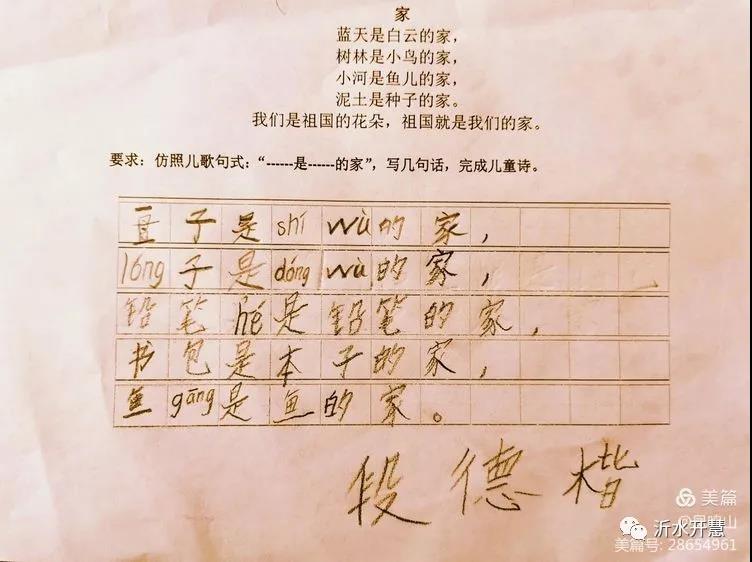 家
蓝天是白云的家，
树林是小鸟的家，
小河是鱼儿的家，
泥土是种子的家。
我们是祖国的花朵，祖国就是我们的家。
要求：仿照儿歌句式：“------是------的家”，写几句话，完成儿童诗。
子是shí wù的家，
lóng子是dóng wù的家，
铅笔hé是铅笔的家，
书包是本子的家，
鱼gāng是鱼的家。
段德楷
美篇
沂水开慧
美篇号: 28654961